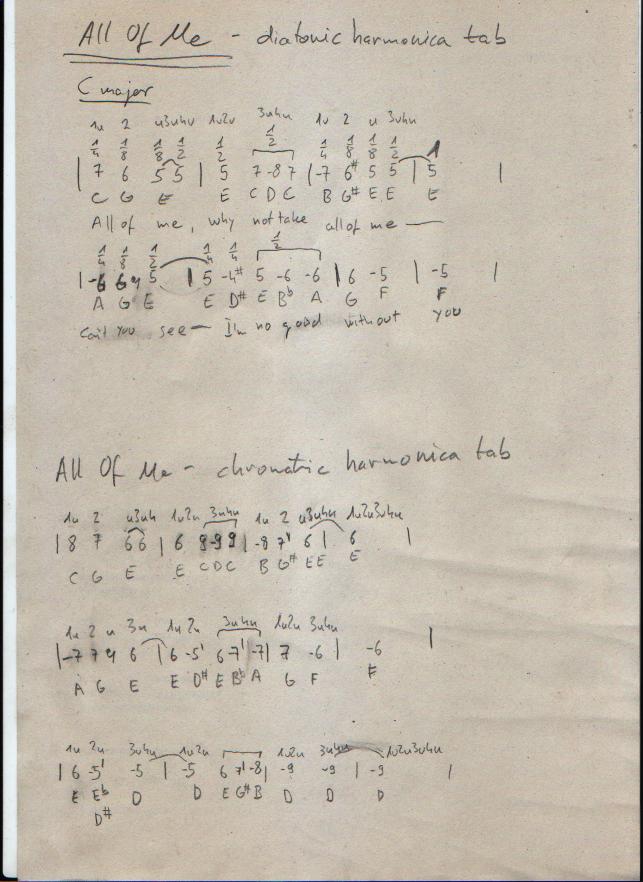 All Of Me - diatonic harmonica tab
C major
1u 2 u3u4u 1u2u 3u4u 1u 2 u 3u4u
1/4 1/8 1/8 1/2 1/2 1/2 1/4 1/8 1/8 1/2 1
| 7 6 5 5 | 5 7 -8 7 | -7 6# 5 5 | 5 |
C G E E C D C B G# E E E
All of me, why not take all of me —
1/4 1/8 1/2 1/4 1/4 1/2
| -6 6 5 | 5 -4# 5 -6 -6 | 6 -5 | -5 |
A G E E D# E Bb A G F F
Can't you see — I'm no good without you
All Of Me - chromatic harmonica tab
1u 2 u3u4 1u2u 3u4u 1u 2 u3u4u 1u2u3u4u
| 8 7 6 6 | 6 9 -9 9 | -8 7' 6 | 6 |
C G E E C D C B G# E E E
1u 2 u 3u 1u 2u 3u4u 1u2u 3u4u
| -7 7 6 | 6 -5' 6 -7' -7 | 7 -6 | -6 |
A G E E D# E Bb A G F F
1u 2u 3u4u 1u2u 1u2u 3u4u 1u2u3u4u
| 6 -5' -5 | -5 6 7' -8 | -9 -9 | -9 |
E Eb D D E G# B D D D
D#